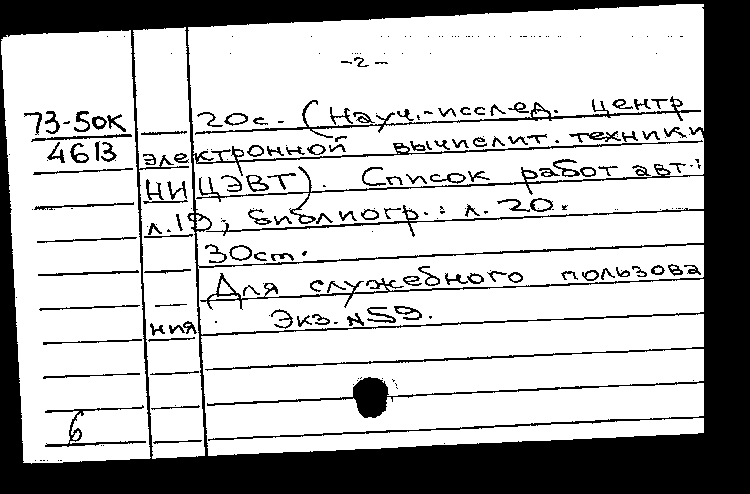 -2-
73-5ок 20с. (Науч.-исслед. центр
4613 электронной вычислит. техники
НИЦЭВТ). Список работ авт.:
л.19; Библиогр.: л. 20.
30см.
Для служебного пользова
ния. Экз. №59.
6